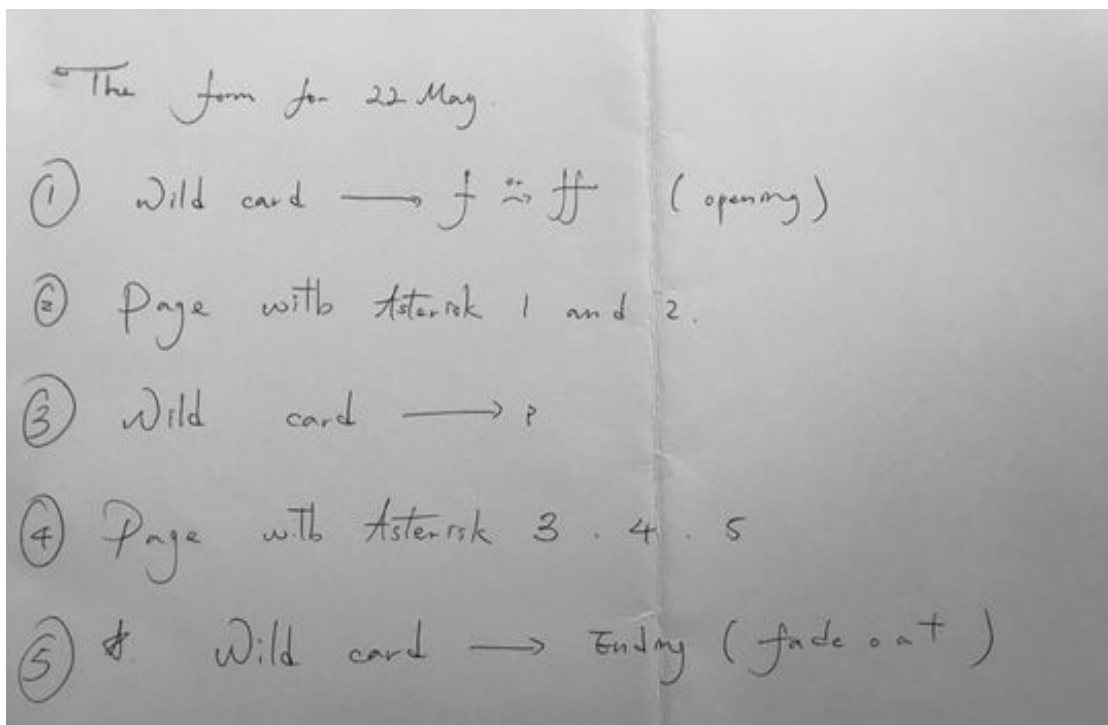 The form for 22 May.
① Wild card → f or ff (opening)
② Page with Asterisk 1 and 2.
③ Wild card → ?
④ Page with Asterisk 3 . 4 . 5
⑤ Wild card → Ending (fade out)